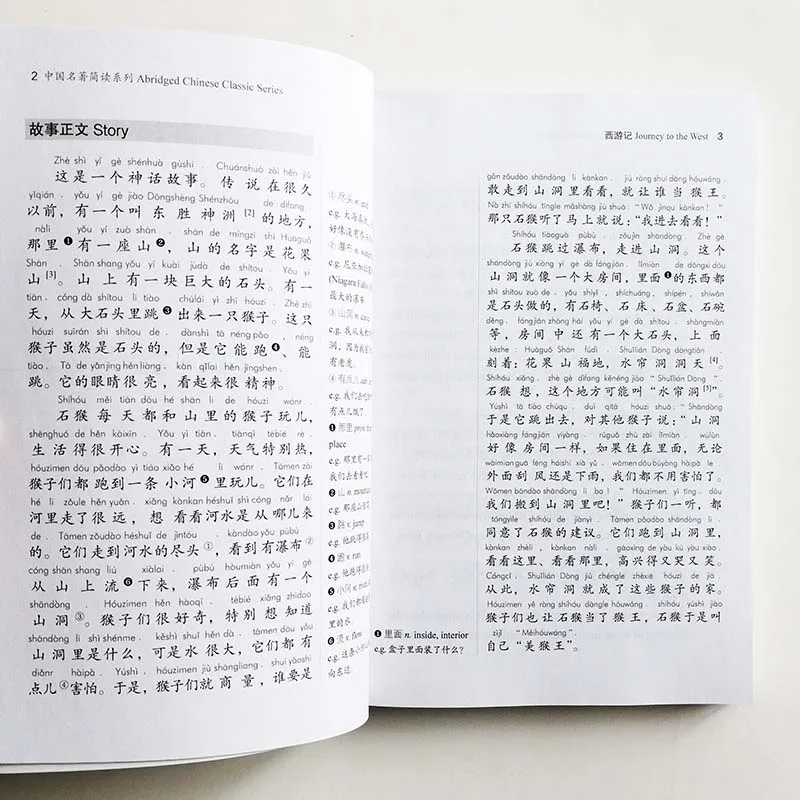 2 中国名著简读系列 Abridged Chinese Classic Series
故事正文 Story
Zhè shì yí gè shénhuà gùshi. Chuánshuō zài hěn jiǔ
这是一个神话故事。传说在很久
yǐqián, yǒu yí gè jiào Dōngshèng Shénzhōu de dìfang,
以前，有一个叫东胜神洲[2]的地方，
nàli yǒu yí zuò shān, shān de míngzi shì Huāguǒ
那里❶有一座山❷，山的名字是花果
Shān. Shān shang yǒu yí kuài jùdà de shítou. Yǒu yì
山[3]。山上有一块巨大的石头。有一
tiān, cóng dà shítou li tiào chūlái yì zhī hóuzi. Zhè zhī
天，从大石头里跳❸出来一只猴子。这只
hóuzi suīrán shì shítou de, dànshì tā néng pǎo, néng
猴子虽然是石头的，但是它能跑❹、能
tiào. Tā de yǎnjing hěn liàng, kàn qǐlai hěn jīngshen.
跳。它的眼睛很亮，看起来很精神。
Shíhóu měi tiān dōu hé shān li de hóuzi wánr,
石猴每天都和山里的猴子玩儿，
shēnghuó de hěn kāixīn. Yǒu yì tiān, tiānqì tèbié rè,
生活得很开心。有一天，天气特别热，
hóuzimen dōu pǎodào yì tiáo xiǎo hé li wánr. Tāmen zài
猴子们都跑到一条小河❺里玩儿。它们在
hé li zǒule hěn yuǎn, xiǎng kànkan héshuǐ shì cóng nǎr lái
河里走了很远，想看看河水是从哪儿来
de. Tāmen zǒudào héshuǐ de jìntóu, kàndào yǒu pùbù
的。它们走到河水的尽头①，看到有瀑布②
cóng shān shang liú xiàlai, pùbù hòumiàn yǒu yí gè
从山上流❻下来，瀑布后面有一个
shāndòng. Hóuzimen hěn hàoqí, tèbié xiǎng zhīdào
山洞③。猴子们很好奇，特别想知道
shāndòng li shì shénme, kěshì shuǐ hěn dà, tāmen dōu yǒu
山洞里是什么，可是水很大，它们都有
diǎnr hàipà. Yúshì, hóuzimen jiù shāngliang, shuí yàoshi
点儿④害怕。于是，猴子们就商量，谁要是
(Niagara Falls)
最大的瀑布。
有老虎。
place
❶ 里面 n. inside, interior
e.g. 盒子里面装了什么？
西游记 Journey to the West 3
gǎn zǒudào shāndòng li kànkan, jiù ràng shuí dāng hóuwáng.
敢走到山洞里看看，就让谁当猴王。
Nà zhī shíhóu tīngle mǎshàng jiù shuō: "Wǒ jìnqu kànkan!"
那只石猴听了马上就说：“我进去看看！”
Shíhóu tiàoguò pùbù, zǒujìn shāndòng. Zhège
石猴跳过瀑布，走进山洞。这个
shāndòng jiù xiàng yí gè dà fángjiān, lǐmiàn de dōngxi dōu
山洞就像一个大房间，里面❶的东西都
shì shítou zuò de, yǒu shíyǐ, shíchuáng, shípén, shíwǎn
是石头做的，有石椅、石床、石盆、石碗
děng, fángjiān zhōng hái yǒu yí gè dà shítou, shàngmiàn
等，房间中还有一个大石头，上面
kèzhe: Huāguǒ Shān fúdì, Shuǐlián Dòng dòngtiān.
刻着：花果山福地，水帘洞洞天[4]。
Shíhóu xiǎng, zhè gè dìfang kěnéng jiào "Shuǐlián Dòng".
石猴想，这个地方可能叫“水帘洞[5]”。
Yúshì tā tiào chūqu, duì qítā hóuzi shuō: "Shāndòng
于是它跳出去，对其他猴子说：“山洞
hǎoxiàng fángjiān yíyàng, rúguǒ zhù zài lǐmiàn, wúlùn
好像房间一样，如果住在里面，无论
wàimian guā fēng háishi xià yǔ, wǒmen dōu búyòng hàipà le.
外面刮风还是下雨，我们都不用害怕了。
Wǒmen bāndào shāndòng li ba!" Hóuzimen yì tīng, dōu
我们搬到山洞里吧！”猴子们一听，都
tóngyìle shíhóu de jiànyì. Tāmen pǎodào shāndòng li,
同意了石猴的建议。它们跑到山洞里，
kànkan zhèli, kànkan nàli, gāoxìng de yòu kū yòu xiào.
看看这里、看看那里，高兴得又哭又笑。
Cóngcǐ, Shuǐlián Dòng jiù chéngle zhèxiē hóuzi de jiā.
从此，水帘洞就成了这些猴子的家。
Hóuzimen yě ràng shíhóu dāngle hóuwáng, shíhóu yúshì jiào
猴子们也让石猴当了猴王，石猴于是叫
zìjǐ "Měihóuwáng".
自己“美猴王”。